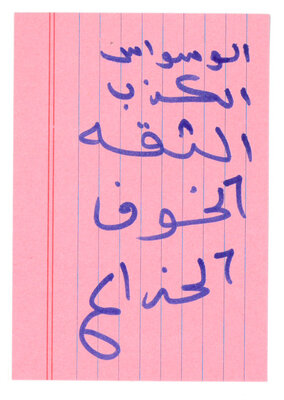 الوسواس
الكذب
الثقه
الخوف
الخداع